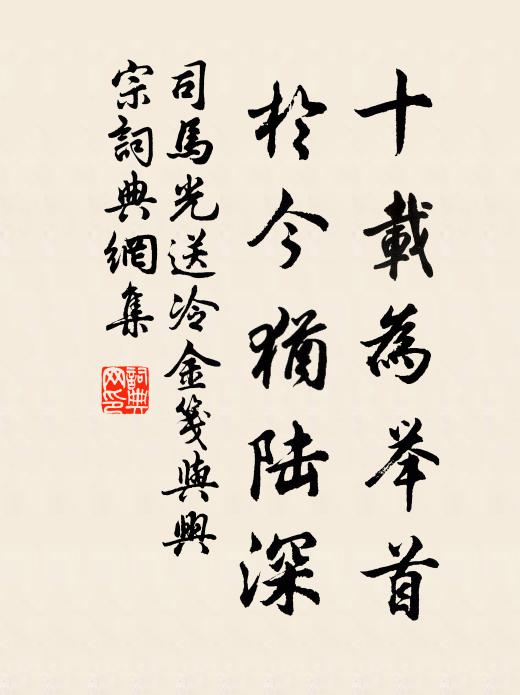 十載為举首
於今猶陆深
司馬光送冷金笺與興
宗詞典網集
詞典网印